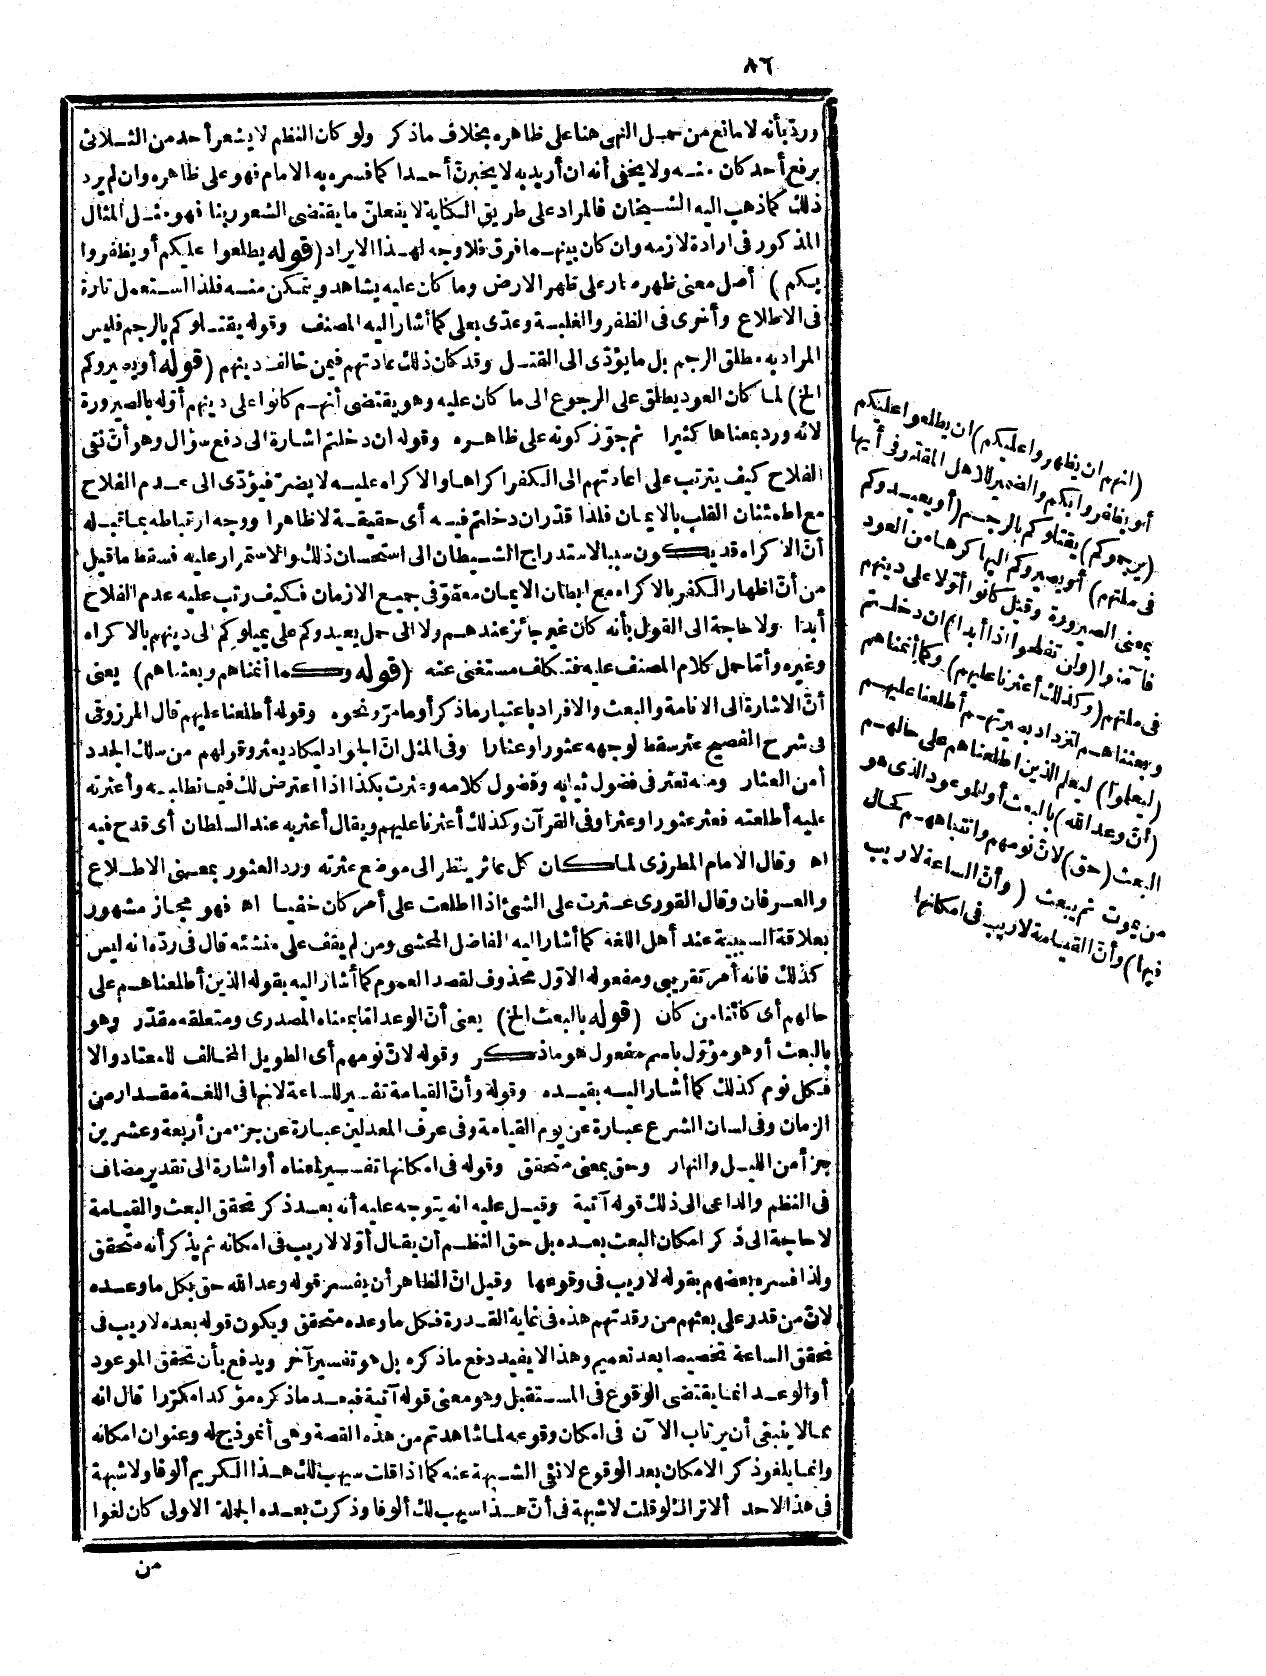 ٨٦
وردّ بأنه لا مانع من حمل النهى هنا على ظاهره بخلاف ما ذكر ولو كان النظم لا يشعر أحد من الثلاثى
برفع أحد كان مثله ولا يخفى أنه ان أريد به لا يخبرنّ أحدا كما فسره به الامام فهو على ظاهره وان لم يرد
ذلك كما ذهب اليه الشيخان فالمراد على طريق الكناية لا يفعلنّ ما يقتضى الشعور بنا فهو مثل المثال
المذكور فى ارادة لازمه وان كان بينهما فرق فلا وجه لهذا الايراد (قوله يطلعوا عليكم أو يظفروا
بكم) أصل معنى ظهر صار على ظهر الارض وما كان عليه يشاهد ويتمكن منه فلذا استعمل تارة
فى الاطلاع وأخرى فى الظفر والغلبة وعدّى بعلى كما أشار اليه المصنف وقوله يقتلوكم بالرجم فليس
المراد به مطلق الرجم بل ما يؤدّى الى القتل وقد كان ذلك عادتهم فيمن خالف دينهم (قوله أو يصيروكم
الخ) لما كان العود يطلق على الرجوع الى ما كان عليه وهو يقتضى أنهم كانوا على دينهم أوّله بالصيرورة
لانه ورد بمعناها كثيرا ثم جوّز كونه على ظاهره وقوله ان دخلتم اشارة الى دفع سؤال وهو أنّ نفى
الفلاح كيف يترتب على اعادتهم الى الكفر اكراها والاكراه عليه لا يضرّ فيؤدّى الى عدم الفلاح
مع اطمئنان القلب بالايمان فلذا قدّر ان دخلتم فيه أى حقيقة لا ظاهرا ووجه ارتباطه بما قبله
أنّ الاكراه قد يكون سببا لاستدراج الشيطان الى استحسان ذلك والاستمرار عليه فسقط ما قيل
من أنّ اظهار الكفر بالاكراه مع ابطان الايمان معفوّ فى جميع الازمان فكيف رتب عليه عدم الفلاح
أبدا ولا حاجة الى القول بأنه كان غير جائز عندهم ولا الى حمل يعيدوكم على يميلوكم الى دينهم بالاكراه
وغيره وأمّا حمل كلام المصنف عليه فتكلف مستغنى عنه (قوله وكما أنمناهم وبعثناهم) يعنى
أنّ الاشارة الى الانامة والبعث والافراد باعتبار ما ذكر أو ما مرّ ونحوه وقوله أطلعنا عليهم قال المرزوقى
فى شرح الفصيح عثر سقط لوجهه عثورا وعثارا وفى المثل انّ الجواد ليكاد يعثر وقولهم من سلك الجدد
أمن العثار ومنه تعثر فى فضول ثيابه وفضول كلامه وعثرت بكذا اذا اعترض لك فيما تطلبه وأعثرته
عليه أطلعته فعثر عثورا وعثرا وفى القرآن وكذلك أعثرنا عليهم ويقال أعثر به عند السلطان أى قدح فيه
اه وقال الامام المطرزى لما كان كل عاثر ينظر الى موضع عثرته ورد العثور بمعنى الاطلاع
والعرفان وقال الغورى عثرت على الشئ اذا اطلعت على أمر كان خفيا اه فهو مجاز مشهور
بعلاقة السببية عند أهل اللغة كما أشار اليه الفاضل المحشى ومن لم يقف على منشئه قال فى ردّه انه ليس
كذلك فانه أمر تقريبى ومفعوله الاوّل محذوف لقصد العموم كما أشار اليه بقوله الذين أطلعناهم على
حالهم أى كائنا من كان (قوله بالبعث الخ) يعنى أنّ الوعد امّا بمعناه المصدرى ومتعلقه مقدّر وهو
بالبعث أو هو مؤوّل باسم مفعول هو ما ذكر وقوله لانّ نومهم أى الطويل المخالف للمعتاد والا
فكل نوم كذلك كما أشار اليه بقيده وقوله وأنّ القيامة تفسير للساعة لانها فى اللغة مقدار من
الزمان وفى لسان الشرع عبارة عن يوم القيامة وفى عرف المعدلين عبارة عن جزء من أربعة وعشرين
جزأ من الليل والنهار وحق بمعنى متحقق وقوله فى امكانها تفسير لمعناه أو اشارة الى تقدير مضاف
فى النظم والداعى الى ذلك قوله آتية وقيل عليه انه يتوجه عليه أنه بعد ذكر تحقق البعث والقيامة
لا حاجة الى ذكر امكان البعث بعده بل حق النظم أن يقال أوّلا لا ريب فى امكانه ثم يذكر أنه متحقق
ولذا فسره بعضهم بقوله لا ريب فى وقوعها وقيل انّ الظاهر أن يفسر قوله وعد الله حق بكل ما وعده
لانّ من قدر على بعثهم من رقدتهم هذه فى غاية القدرة فكل ما وعده متحقق ويكون قوله بعده لا ريب فى
تحقق الساعة تخصيصا بعد تعميم وهذا لا يفيد دفع ما ذكره بل هو تفسير آخر ويدفع بأن تحقق الموعود
أو الوعد انما يقتضى الوقوع فى المستقبل وهو معنى قوله آتية فبعد ما ذكره مؤكدا مكررا قال انه
مما لا ينبغى أن يرتاب الآن فى امكان وقوعه لما شاهدتم من هذه القصة وهى أنموذج له وعنوان امكانه
وانما يلغو ذكر الامكان بعد الوقوع لا نفى الشبهة عنه كما اذا قلت سيهب لك هذا الكريم ألوفا ولا شبهة
فى هذا لاحد ألا تراك لو قلت لا شبهة فى أنّ هذا سيهب لك ألوفا وذكرت بعده الجملة الاولى كان لغوا
من
(انهم ان يظهروا عليكم) ان يطلعوا عليكم
أو يظفروا بكم والضمير للاهل المقدّر فى أيها
(يرجموكم) يقتلوكم بالرجم (أو يعيدوكم
فى ملتهم) أو يصيروكم اليها كرها من العود
بمعنى الصيرورة وقيل كانوا أوّلا على دينهم
فآمنوا (ولن تفلحوا اذا أبدا) ان دخلتم
فى ملتهم (وكذلك أعثرنا عليهم) وكما أنمناهم
وبعثناهم لتزداد بصيرتهم أطلعنا عليهم
(ليعلموا) ليعلم الذين اطلعناهم على حالهم
(أنّ وعد الله) بالبعث أو الموعود الذى هو
البعث (حق) لانّ نومهم وانتباههم كحال
من يموت ثم يبعث (وأنّ الساعة لا ريب
فيها) وأنّ القيامة لا ريب فى امكانها